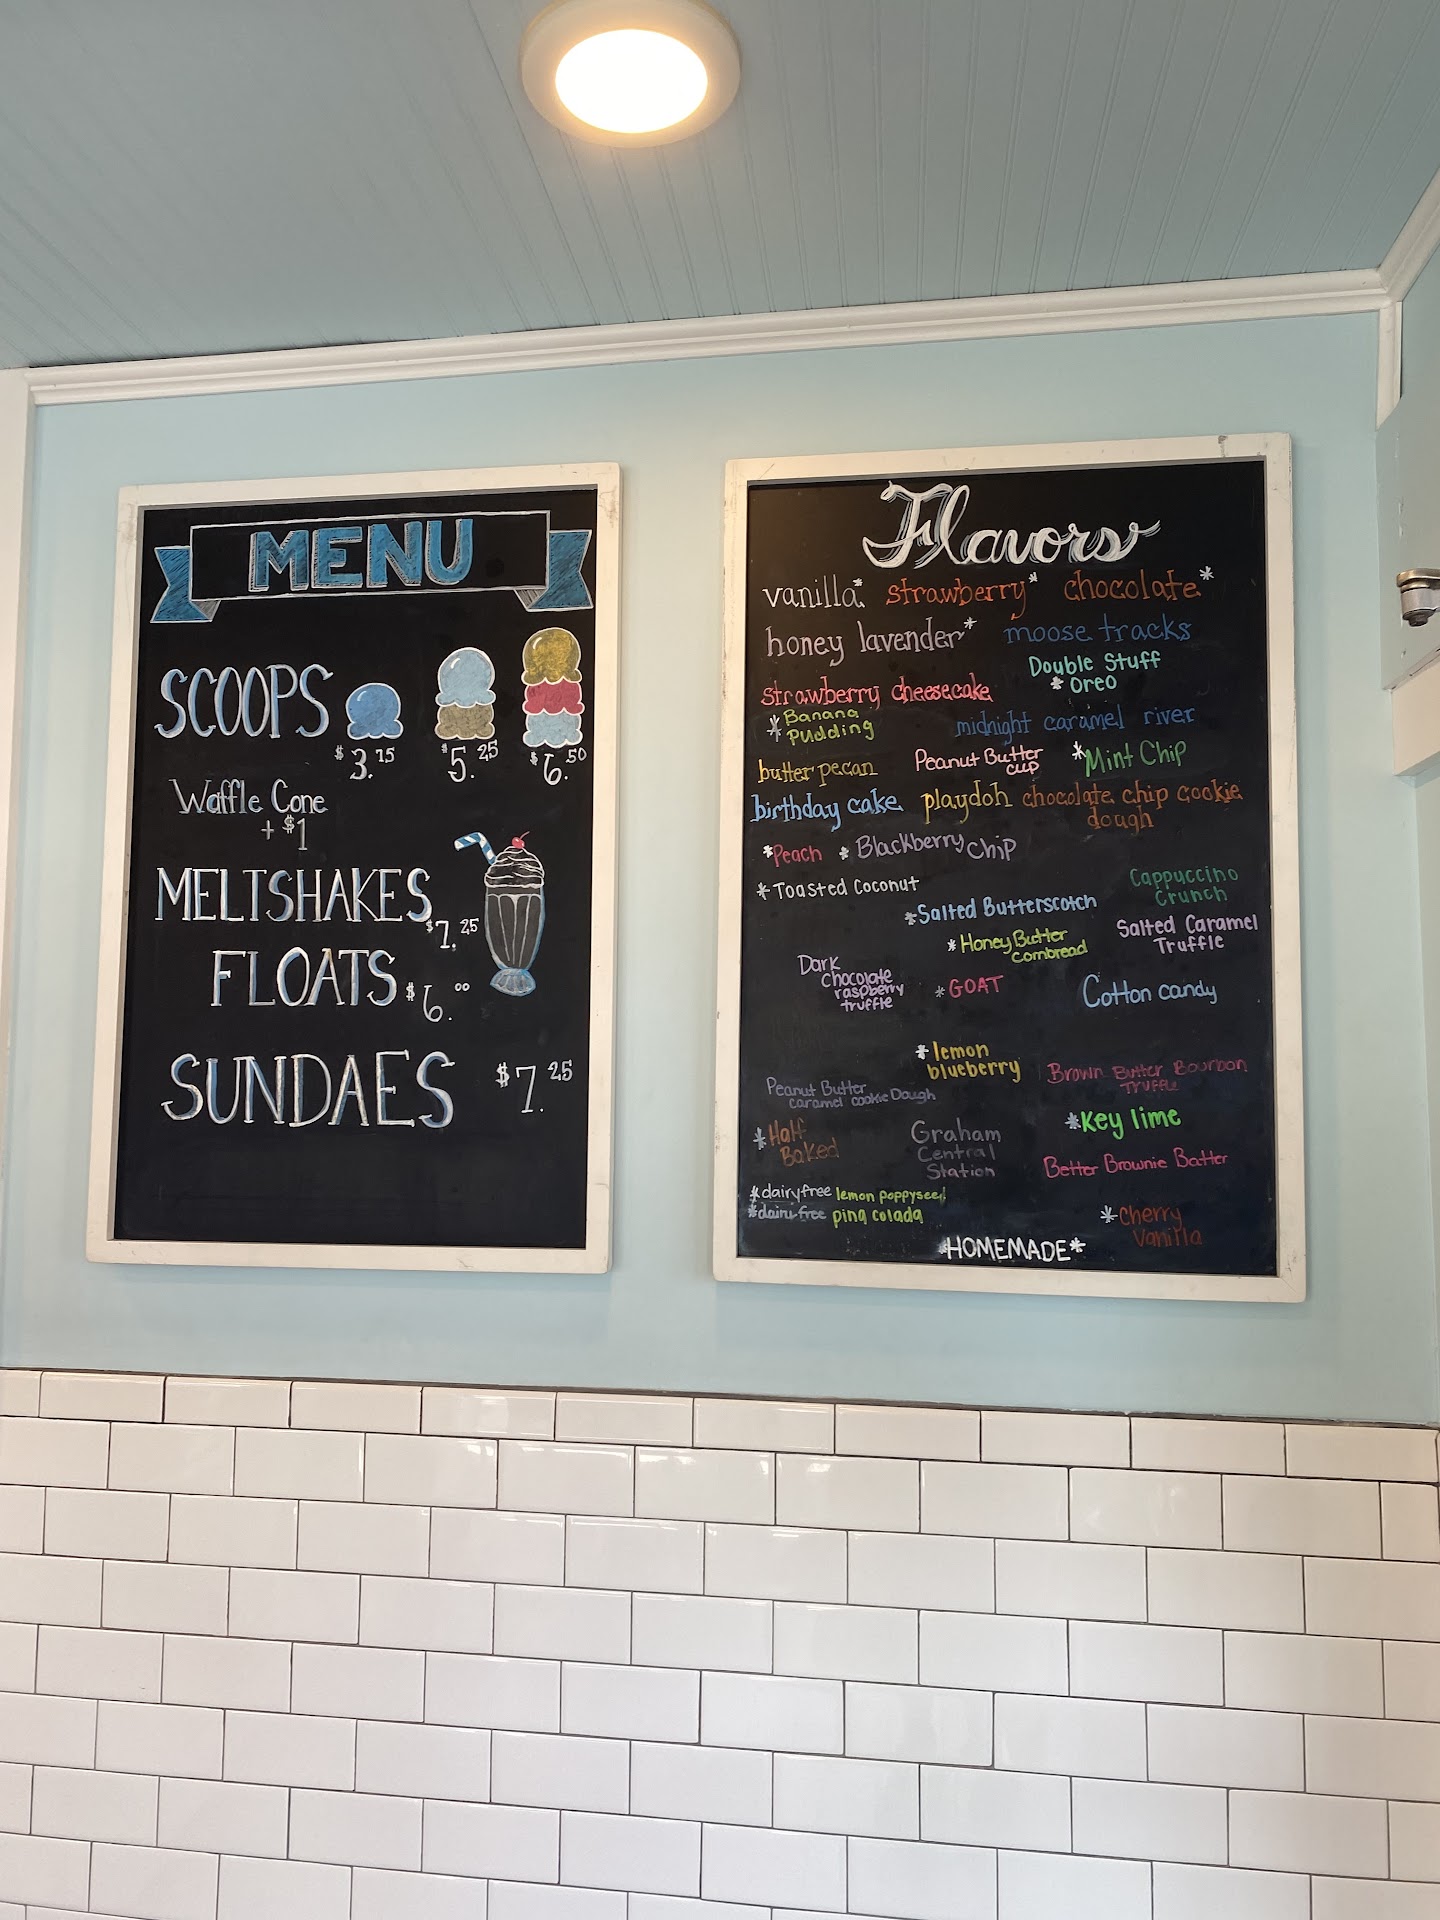 MENU
SCOOPS
$3.75 $5.25 $6.50
Waffle Cone
+ $1
MELTSHAKES
$7.25
FLOATS $6.00
SUNDAES $7.25
Flavors
vanilla* strawberry* chocolate*
honey lavender* moose tracks
Double Stuff
* Oreo
strawberry cheesecake
* Banana
Pudding
midnight caramel river
butter pecan
Peanut Butter
cup
*Mint Chip
birthday cake playdoh chocolate chip cookie
dough
*Peach * Blackberry Chip
* Toasted Coconut
Cappuccino
Crunch
*Salted Butterscotch
Salted Caramel
Truffle
* Honey Butter
Cornbread
Dark
Chocolate
raspberry
truffle
* GOAT
Cotton candy
* lemon
blueberry
Brown Butter Bourbon
Truffle
Peanut Butter
caramel cookie Dough
*Key lime
* Half
Baked
Graham
Central
Station
Better Brownie Batter
*dairyfree lemon poppyseed!
*dairy-free pina colada
*Cherry
Vanilla
*HOMEMADE*